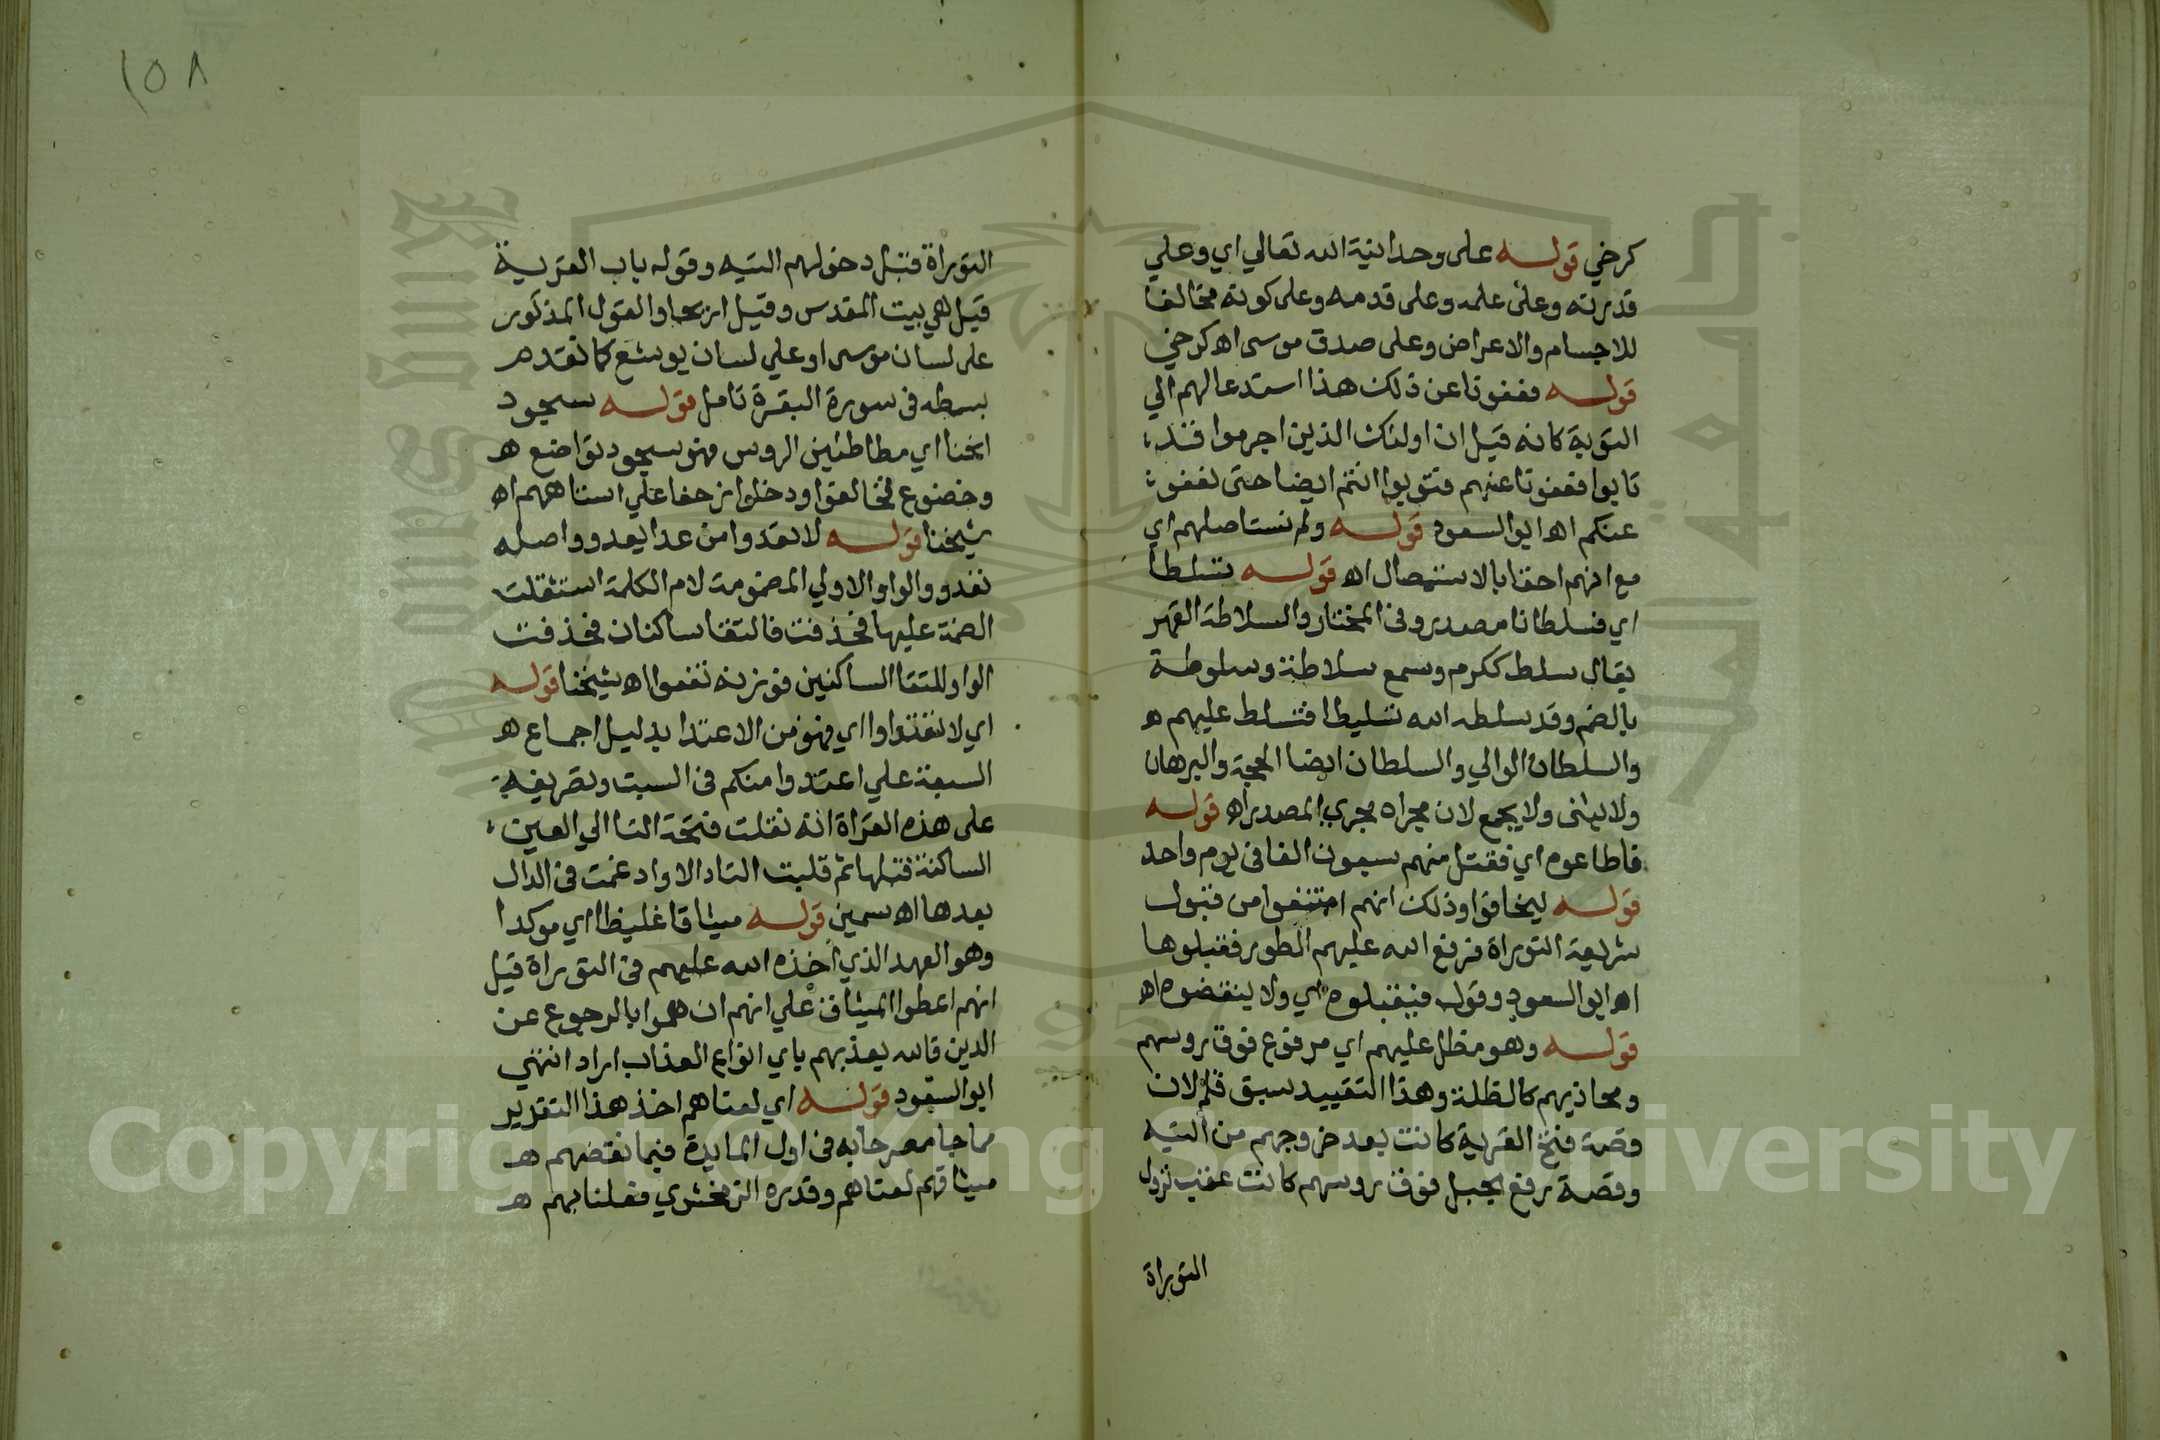 كرخي قوله على وحدانية الله تعالي اي وعلي
قدرته وعلى علمه وعلى قدمه وعلى كونه مخالفا
للاجسام والاعراض وعلى صدق موسى اه كرخي
قوله فعفونا عن ذلك هذا استدعا لهم الي
التوبة كانه قيل ان اولئك الذين اجرموا قد
تابوا فعفونا عنهم فتوبوا انتم ايضا حتى نعفو
عنكم اه ابو السعود قوله ولم نستاصلهم اي
مع انهم احقا بالاستيصال اه قوله تسلطا
اي فسلطانا مصدر وفي المختار والسلاطة القهر
يقال سلط ككرم وسمع سلاطة وسلوطة
بالضم وقد سلطه الله تسليطا فتسلط عليهم ه
والسلطان الوالي والسلطان ايضا الحجة والبرهان
ولا يثنى ولا يجمع لان مجراه مجري المصدر اه قوله
فاطاعوه اي فقتل منهم سبعون الفا في يوم واحد
قوله ليخافوا وذلك انهم امتنعوا من قبول
شريعة التوراة فرفع الله عليهم الطور فقبلوها
اه ابو السعود وقوله فيقبلوه اي ولا ينقضوه اه
قوله وهو مظل عليهم اي مرفوع فوق روسهم
ومحاذيهم كالظلة وهذا التقييد سبق قلم لان
وقصة فتح القرية كانت بعد خروجهم من التيه
وقصة رفع الجبل فوق روسهم كانت عقب نزول
التوراة
١٥٨
التوراة قبل دخولهم التيه وقوله باب القرية
قيل هي بيت المقدس وقيل اريحا والقول المذكور
على لسان موسى او علي لسان يوشع كما تقدم
بسطه في سورة البقرة تامل قوله سجود
انحنا اي مطاطئين الروس فهو سجود تواضع ه
وخضوع فخالفوا ودخلوا زحفا علي استاههم اه
شيخنا قوله لا تعدوا من عدا يعدو واصله
تعدوو الواو الاولي المضمومة لام الكلمة استثقلت
الضمة عليها فحذفت فالتقا ساكنان فحذفت
الواو للتقا الساكنين فوزنه تفعوا اه شيخنا قوله
اي لا تعتدوا اي فهو من الاعتدا بدليل اجماع ه
السبعة علي اعتدوا منكم في السبت وتصريفه
على هذه القراة انه نقلت فتحة التا الي العين
الساكنة قبلها ثم قلبت التا دالا وادغمت في الدال
بعدها اه سمين قوله ميثاقا غليظا اي موكدا
وهو العهد الذي اخذه الله عليهم في التوراة قيل
انهم اعطوا الميثاق علي انهم ان هموا بالرجوع عن
الدين فالله يعذبهم باي انواع العذاب اراد انتهي
ابو السعود قوله اي لعناهم اخذ هذا التقدير
مما جا مصرحا به في اول المايدة فيما نقضهم ه
ميثاقهم لعناهم وقدره الزمخشري فعلنا بهم ه
Copyright © King Saud University